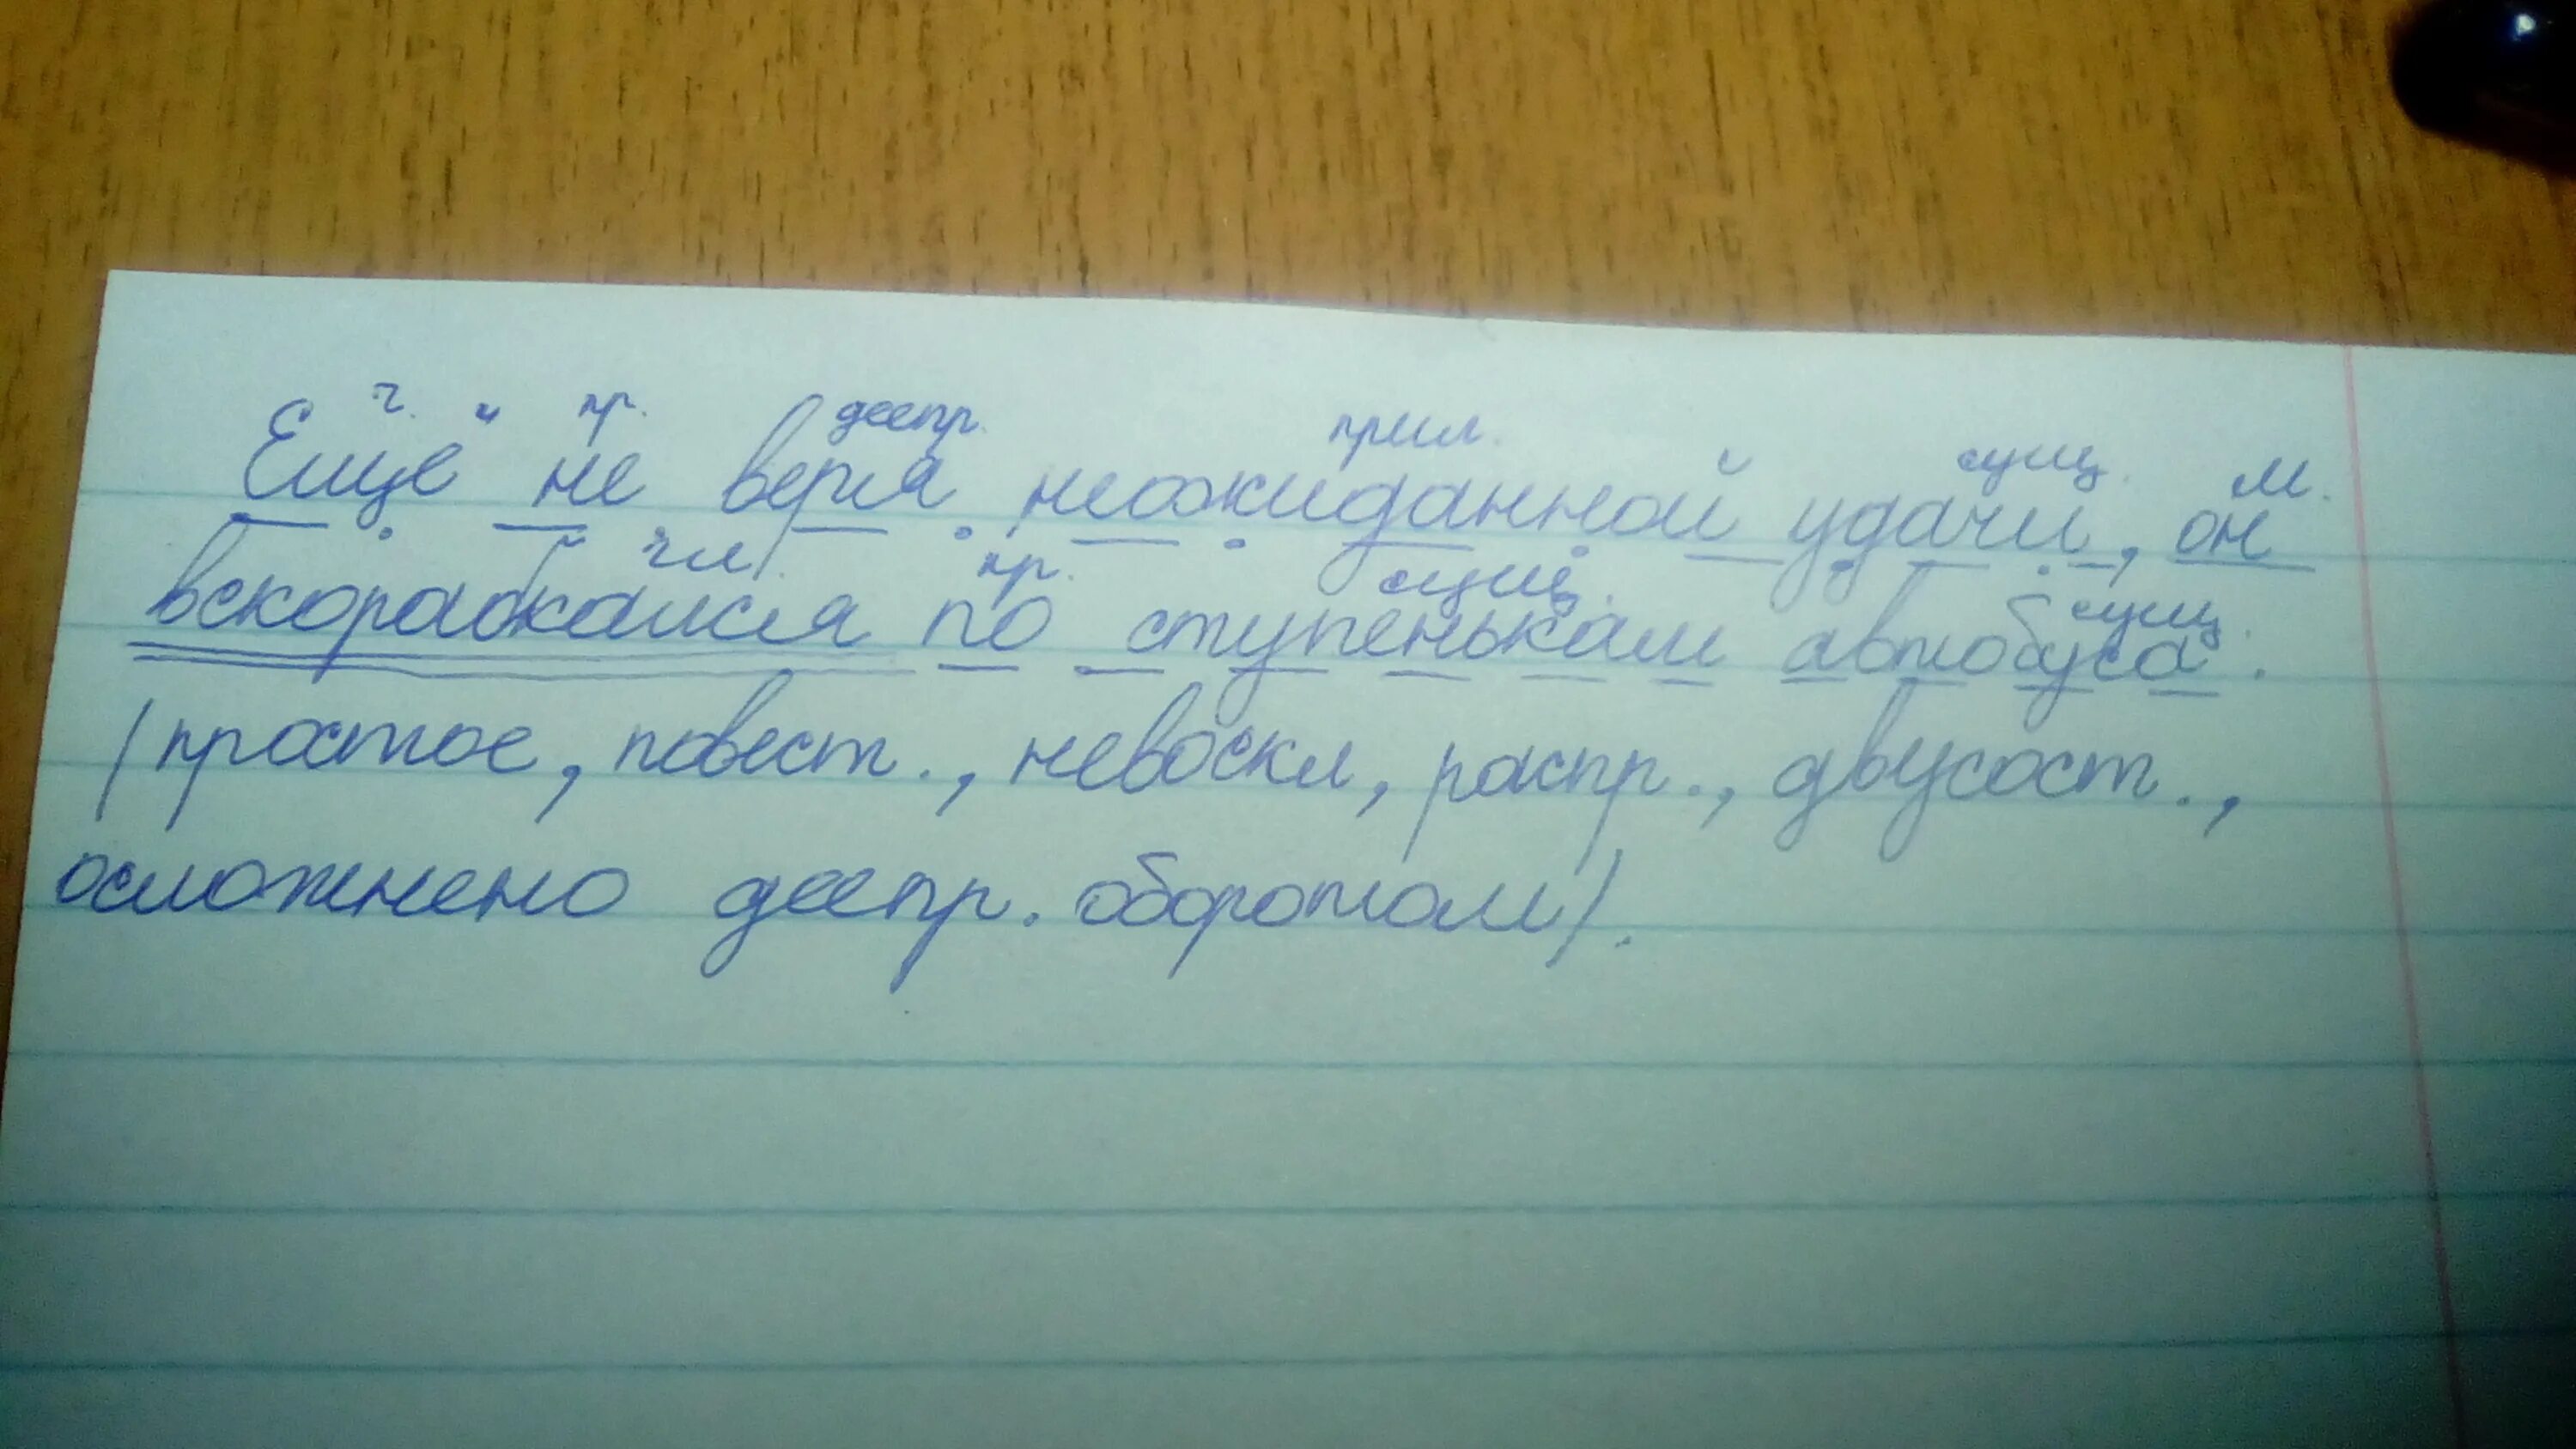 ч. пр. деепр. прил. сущ. м.
Ещё не веря неожиданной удачи, он
гл. пр. сущ. сущ.
вскорабкался по ступенькам автобуса.
(простое, повест., невоскл, распр., двусост.,
осложнено деепр. оборотом).